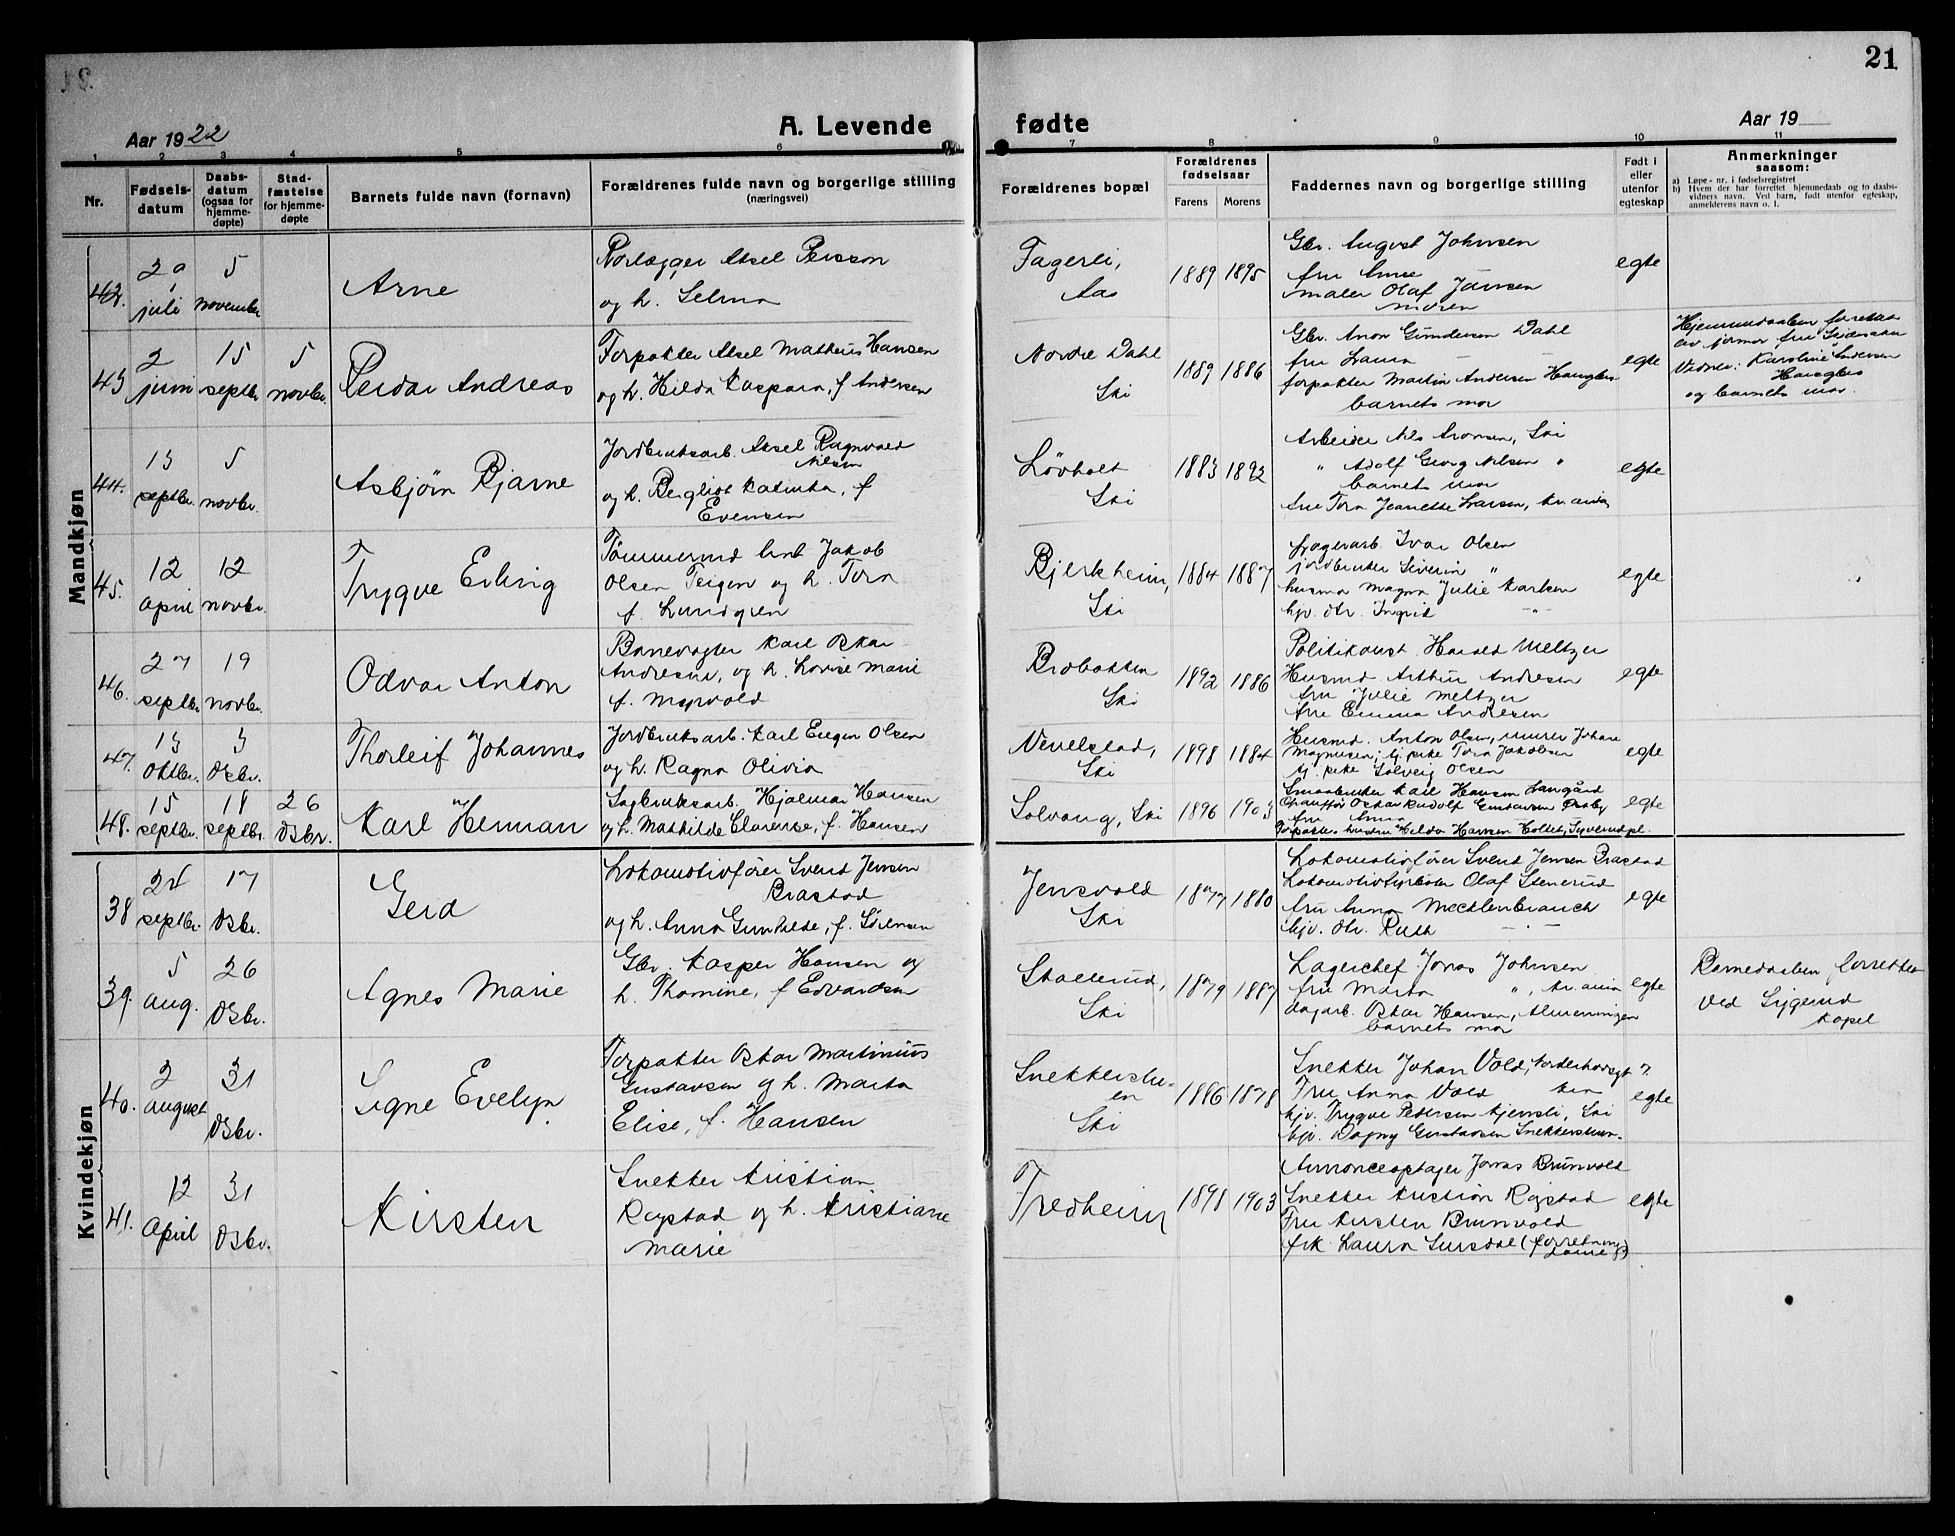 21
Aar 1922
A. Levende fødte
Aar 19
1 2 3 4 5 6 7 8 9 10 11
Nr.
Fødsels-
datum
Daabs-
datum
(ogsaa for
hjemme-
døpte)
Stad-
fæstelse
for hjemme-
døpte
Barnets fulde navn (fornavn)
Forældrenes fulde navn og borgerlige stilling
(næringsvei)
Forældrenes bopæl
Forældrenes
fødselsaar
Farens Morens
Faddernes navn og borgerlige stilling
Født i
eller
utenfor
egteskap
Anmerkninger
saasom:
a) Løpe-nr. i fødselsregistret
b) Hvem der har forrettet hjemmedaab og to daabs-
vidners navn. Ved barn, født utenfor egteskap,
anmelderens navn o. l.
Mandkjøn
42.
juli
5
november
Arne
Rørlægger Aksel Persson
og h. Selma
Fagerli,
Aas
1889 1895
Gbr. August Johnsen
fru Anna
maler Olaf Jansen
moren
egte
43
2
juni
15
septbr.
5
novbr.
Reidar Andreas
Forpakter Aksel Matheus Hansen
og h. Hilda Kaspara, f. Andersen
Nordre Dahl
Ski
1889 1886
Gbr. Anon Gundersen Dahl
fru Laura
forpakter Martin Andersen
barnets mor
egte
Hjemmedaaben forettet
av jormor fru
Vidner: Karoline Andersen
og barnets mor.
44.
13
septbr.
5
novbr.
Asbjørn Bjarne
Jordbruksarb. Aksel Ragnvald
Nilsen
og h. Bergliot Katinka, f
Evensen
Løvholt
Ski
1883 1892
Arbeider Nils Aronsen, Ski
" Adolf Georg Nilsen "
barnets mor
fru Tora Jeanette Larsen, Kr.ania
egte
45.
12
april
12
novbr.
Trygve Erling
Tømmermd Arnt Jakob
Olsen Teigen og h. Tora
f. Lundgren
Bjerkheim,
Ski
1884 1887
Lagerarb. Ivar Olsen
jordbruker Siverin "
husmo Magna Julie Karlsen
hjv. dtr. Ingrid
egte
46.
27
septbr.
19
novbr.
Odvar Anton
Banevogter Karl Oskar
Andresen, og h. Lovise Marie
f. Myrvold
Brobakken
Ski
1892 1886
Politikonst. Harald Meltzer
Husmd. Arthur Andresen
fru Julie Meltzer
fru Emma Andresen
egte
47.
13
oktbr.
3
dsbr.
Thorleif Johannes
Jordbruksarb. Karl Eugen Olsen
og h. Ragna Olivia
Nevelstad,
Ski
1898 1884
Husmd. Anton Olsen, murer Johan
Magnusen, tj. pike Tora Jakobsen
tj. pike Solveig Olsen
egte
48.
15
septbr.
18
septbr.
26
dsbr.
Karl Herman
Sagbruksarb. Hjalmar Hansen
og h. Mathilde Clarense, f. Hansen
Solvang, Ski
1896 1903
Smaabruker Karl Hansen Langård
Chauffør Oskar Rudolf Gustavsen
fru Anna
Hilda Hansen Holtet,
egte
Kvindekjøn
38
24
septbr.
17
dsbr.
Gerd
Lokomotivfører Svend Jensen
Brastad
og h. Anna Gunhilde, f. Sørensen
Jensvold
Ski
1877 1880
Lokomotivfører Svend Jensen Brastad
Olaf Stenerud
fru Anna Mecklenbrauch
hjv. dtr. Ruth
egte
39.
5
aug.
26
dsbr.
Agnes Marie
Gbr. Kasper Hansen og
h. Thomine, f Edvardsen
Skollerud,
Ski
1879 1887
Lagerchef Jonas Johnsen
fru Marta ", Kr.ania
dagarb. Oskar Hansen, Almenningen
barnets mor
egte
Barnedaaben forrettet
ved
kapel
40.
2
august
31
dsbr.
Signe Evelyn
Forpakter Oskar Martinius
Gustavsen og h. Marta
Elise, f. Hansen
Snekkerstu-
en
Ski
1886 1878
Snekker Johan Vold,
Fru Anna Vold
hjv. Trygve Pedersen Kjensli, Ski
hjv. Dagny Gustavsen Snekkerstuen.
egte
41.
12
April
31
dsbr.
Kirsten
Snekker Kristian
Rogstad og h. Kristiane
Marie
Fredheim
1898 1903
Annonceoptager Jonas Brunvold
Snekker Kristian Rogstad
Fru Kirsten Brunvold
frk Laura
egte